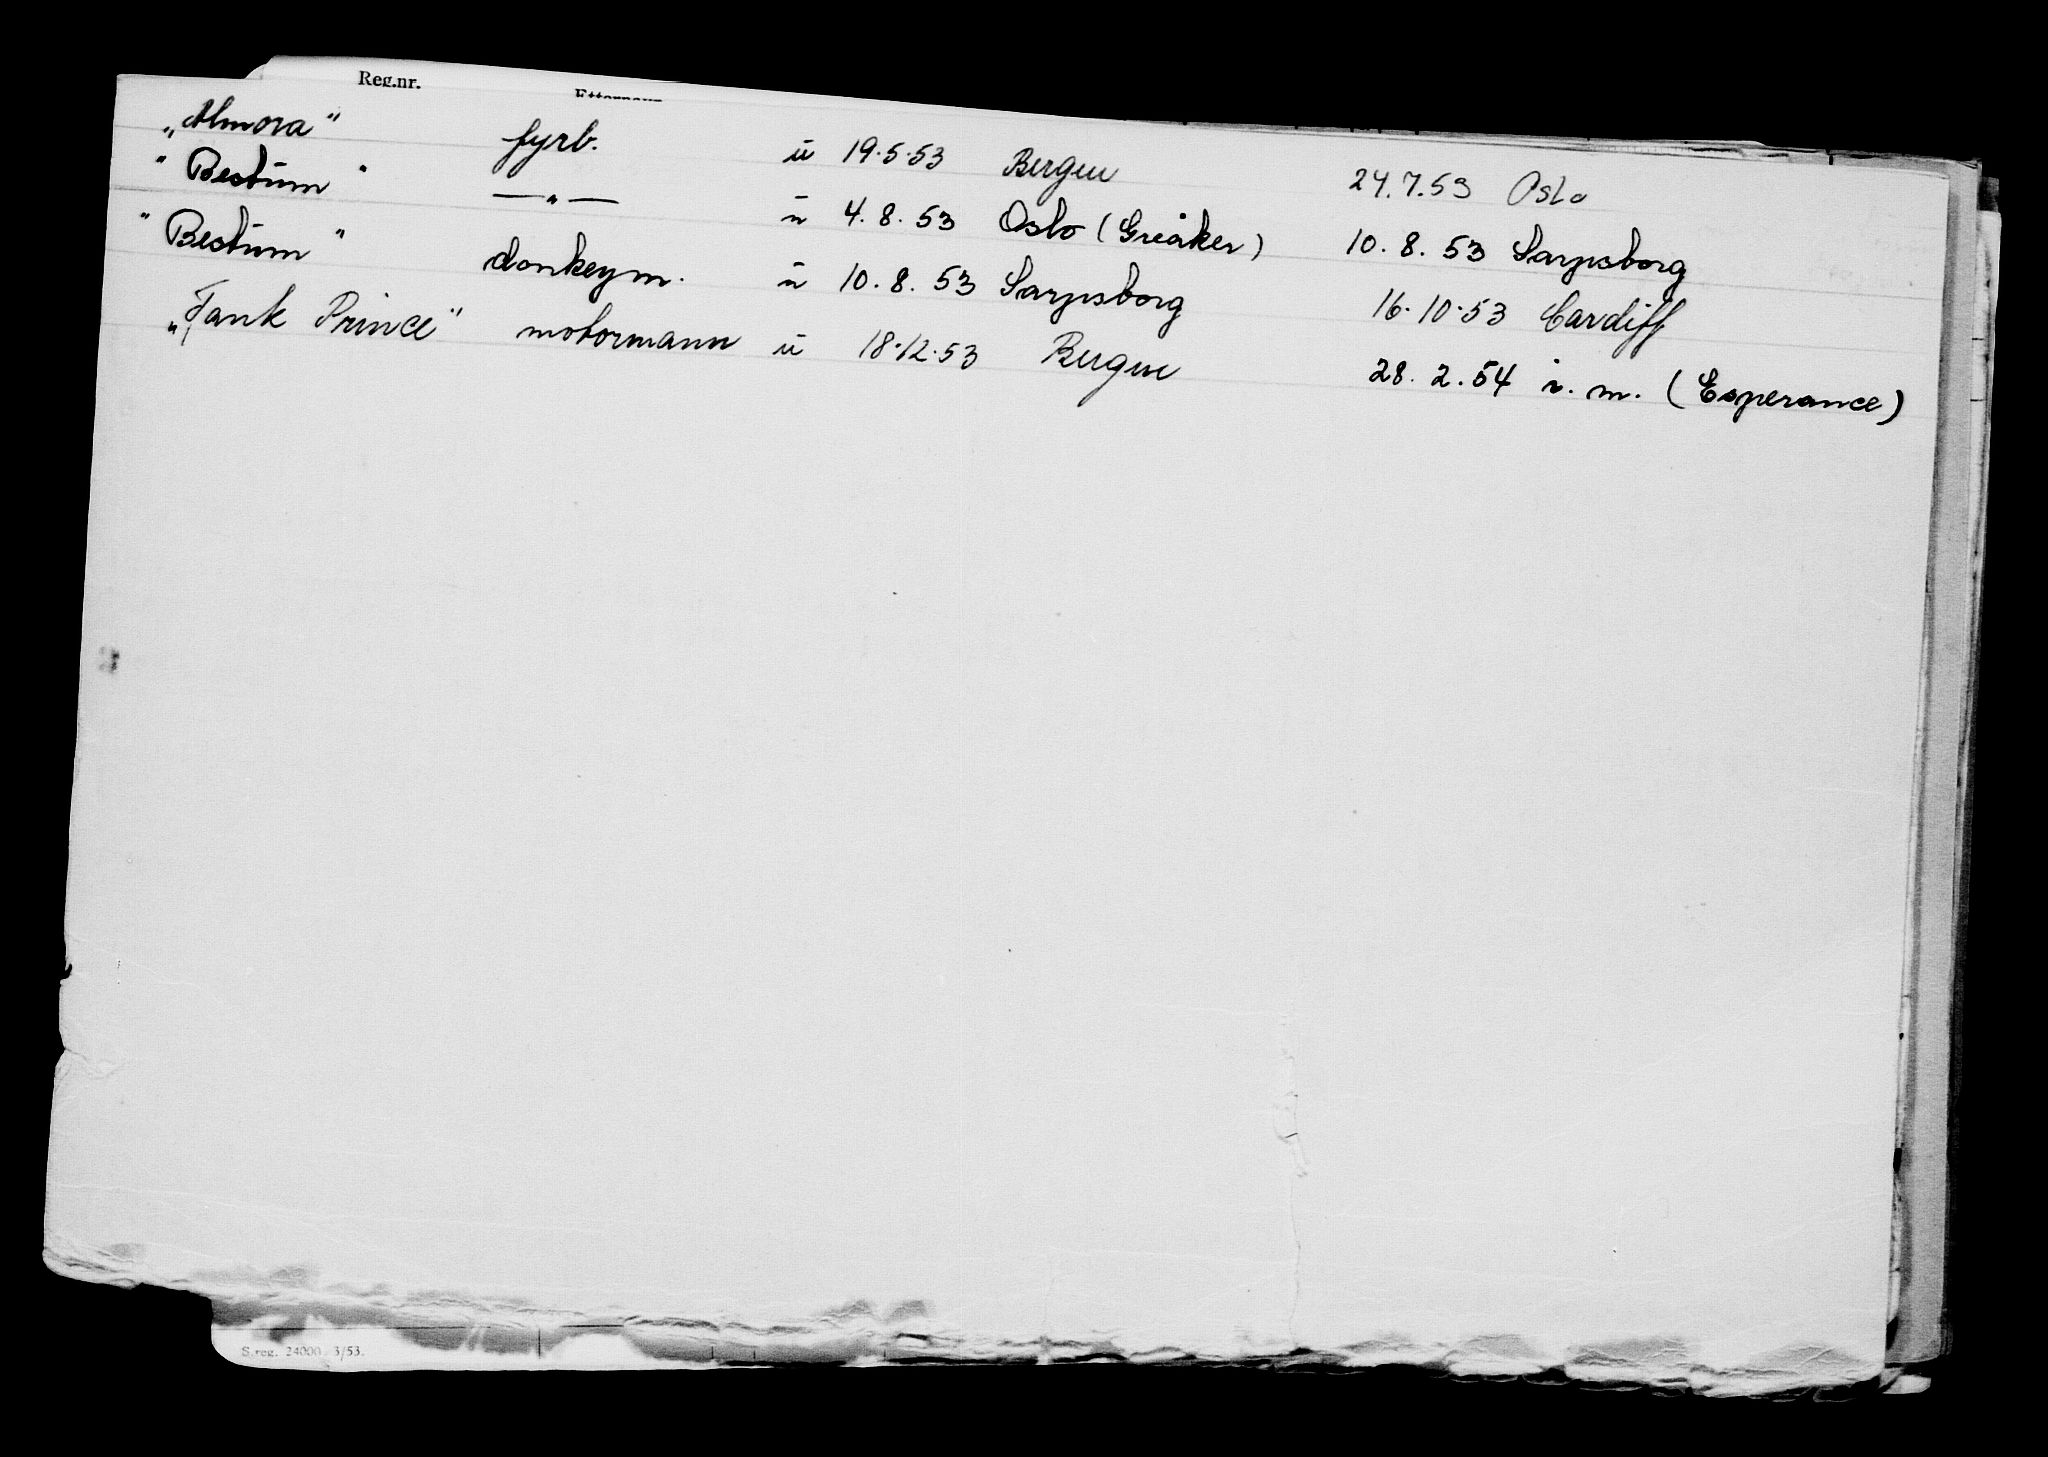 Reg.nr.
Etternavn
„Almora" fyrb. u 19.5.53 Bergen 24.7.53 Oslo
"Bestum" —"— u 4.8.53 Oslo (Greåker) 10.8.53 Sarpsborg
"Bestum" donkeym. u 10.8.53 Sarpsborg 16.10.53 Cardiff
„Tank Prince" motormann u 18.12.53 Bergen 28.2.54 i.m. (Esperance)
S.reg. 24000 3/53.